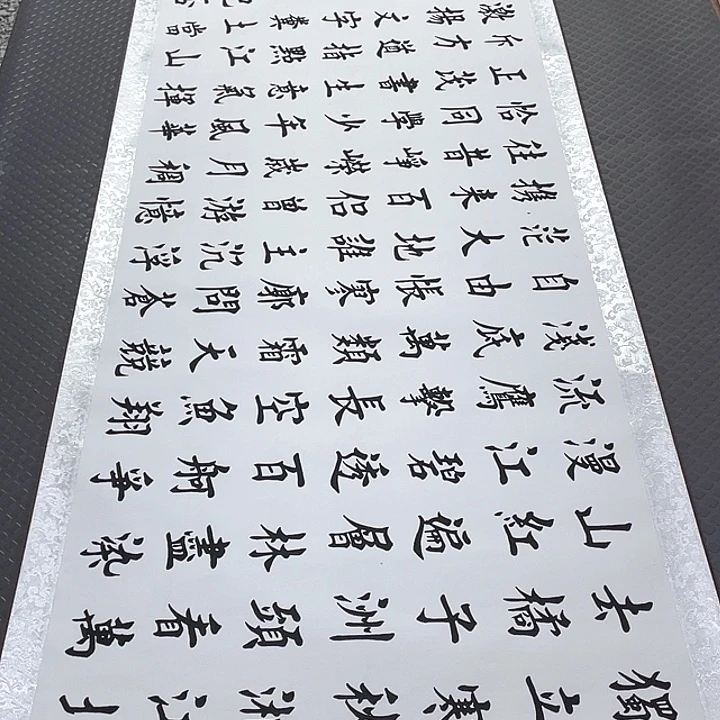 獨立寒秋湘江北
去橘子洲頭看萬
山紅遍層林盡染
漫江碧透百舸爭
流鷹擊長空魚翔
淺底萬類霜天競
自由悵寥廓問蒼
茫大地誰主沉浮
攜來百侶曾游憶
往昔崢嶸歲月稠
恰同學少年風華
正茂書生意氣揮
斥方遒指點江山
激揚文字糞土當